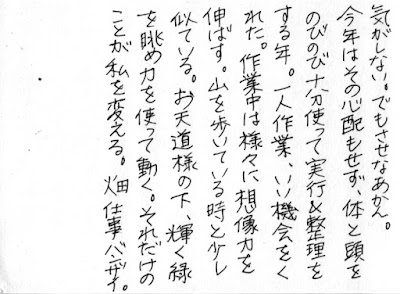 気がしない。でもさせなあかん。
今年はその心配もせず、体と頭を
のびのび十分使って実行&整理を
する年。一人作業、いい機会をく
れた。作業中は様々に想像力を
伸ばす。山を歩いている時と少し
似ている。お天道様の下、輝く緑
を眺め力を使って動く。それだけの
ことが私を変える。畑仕事バンザイ。